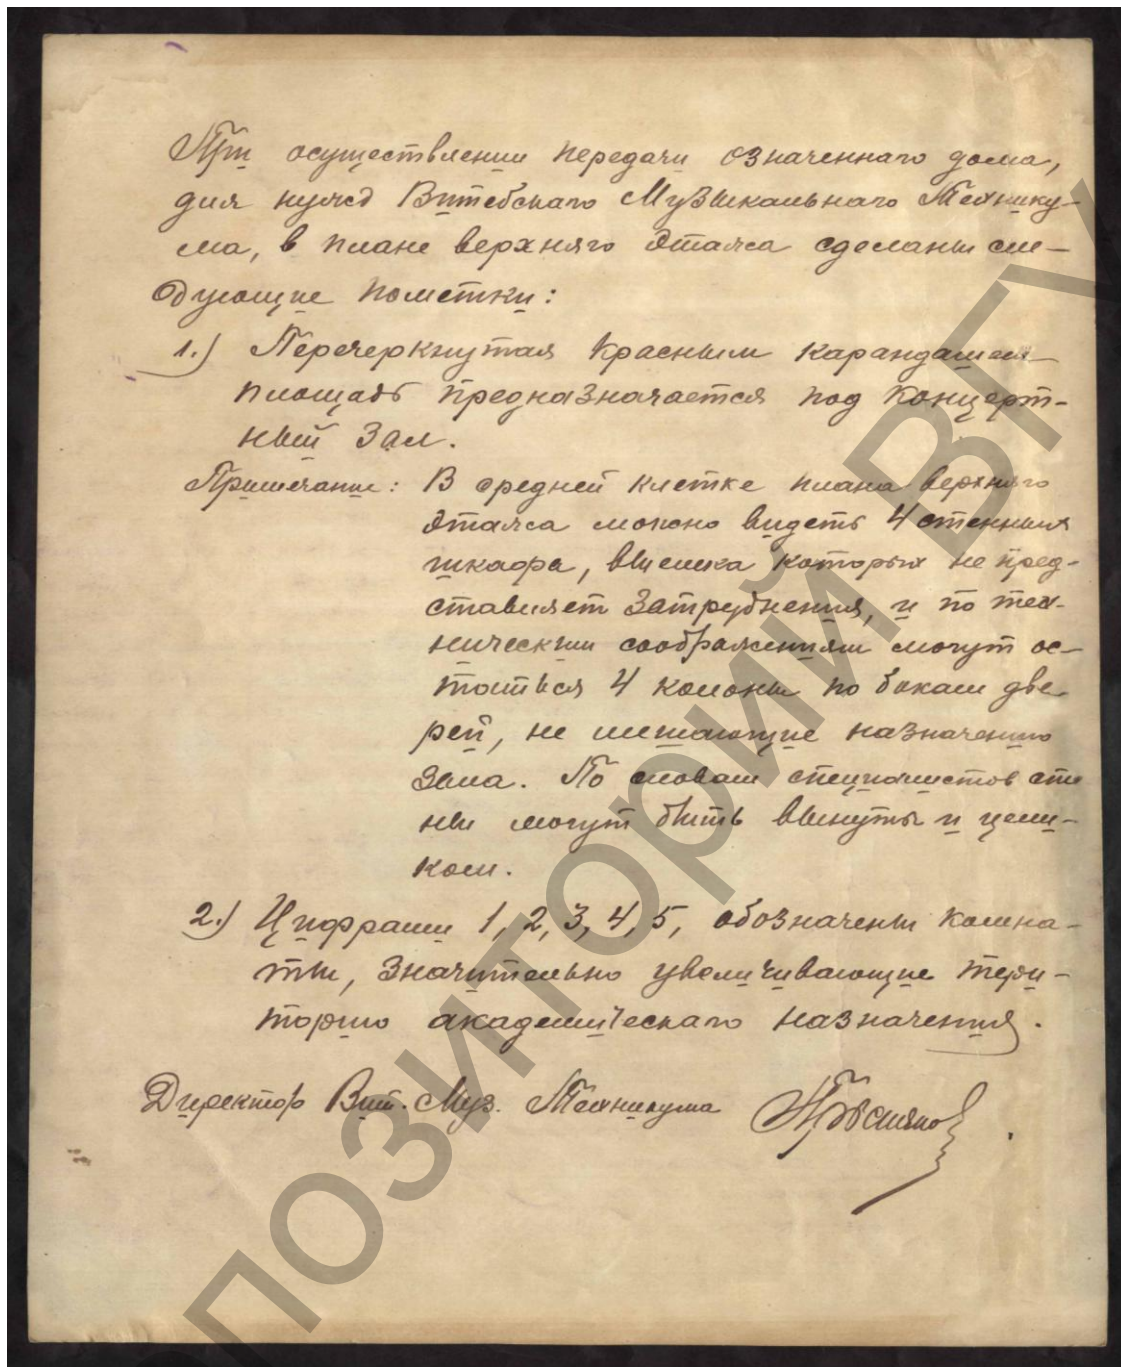 При осуществлении передачи означеннаго дома,
для нужд Витебскаго Музыкальнаго Технику-
ма, в плане верхняго этажа сделаны сле-
дующие пометки:
1.) Перечеркнутая красным карандашем
площадь предназначается под Концерт-
ный Зал.
Примечание: В средней клетке плана верхняго
этажа можно видеть 4 стенных
шкафа, выемка которых не пред-
ставляет затруднения, и по тех-
ническим соображениям могут ос-
таться 4 колоны по бокам две
рей, не мешающие назначению
Зала. По словам специалистов сте
ны могут быть вынуты и цели-
ком.
2.) Цифрами 1, 2, 3, 4, 5, обозначены комна-
ты, значительно увеличивающие тери-
торию академическаго назначения.
Директор Вит. Муз. Техникума
ПОЗИТОРИЙ ВГУ